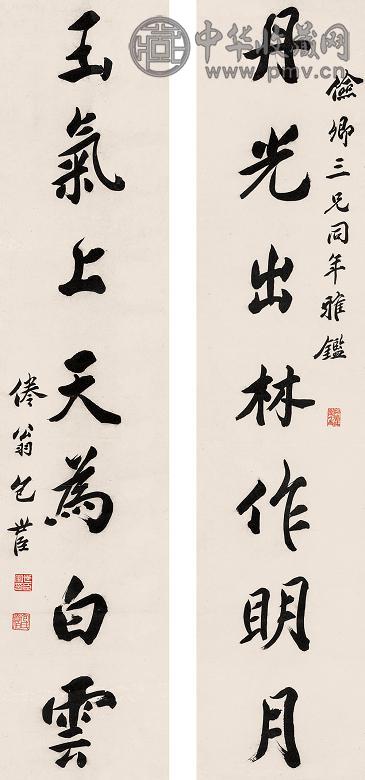 儉卿三兄同年雅鑑
丹光出林作明月
玉氣上天為白雲
倦翁包世臣
中华收藏网
www.pmv.cn